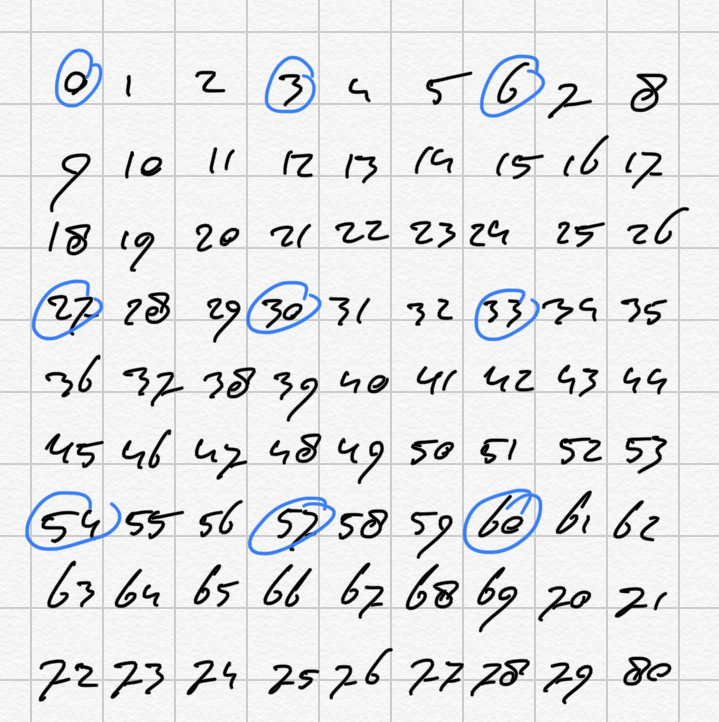 0 1 2 3 4 5 6 7 8
9 10 11 12 13 14 15 16 17
18 19 20 21 22 23 24 25 26
27 28 29 30 31 32 33 34 35
36 37 38 39 40 41 42 43 44
45 46 47 48 49 50 51 52 53
54 55 56 57 58 59 60 61 62
63 64 65 66 67 68 69 70 71
72 73 74 75 76 77 78 79 80